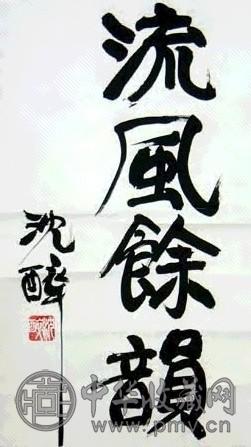 流風餘韻
沈醉
中华收藏网
www.pmv.cn